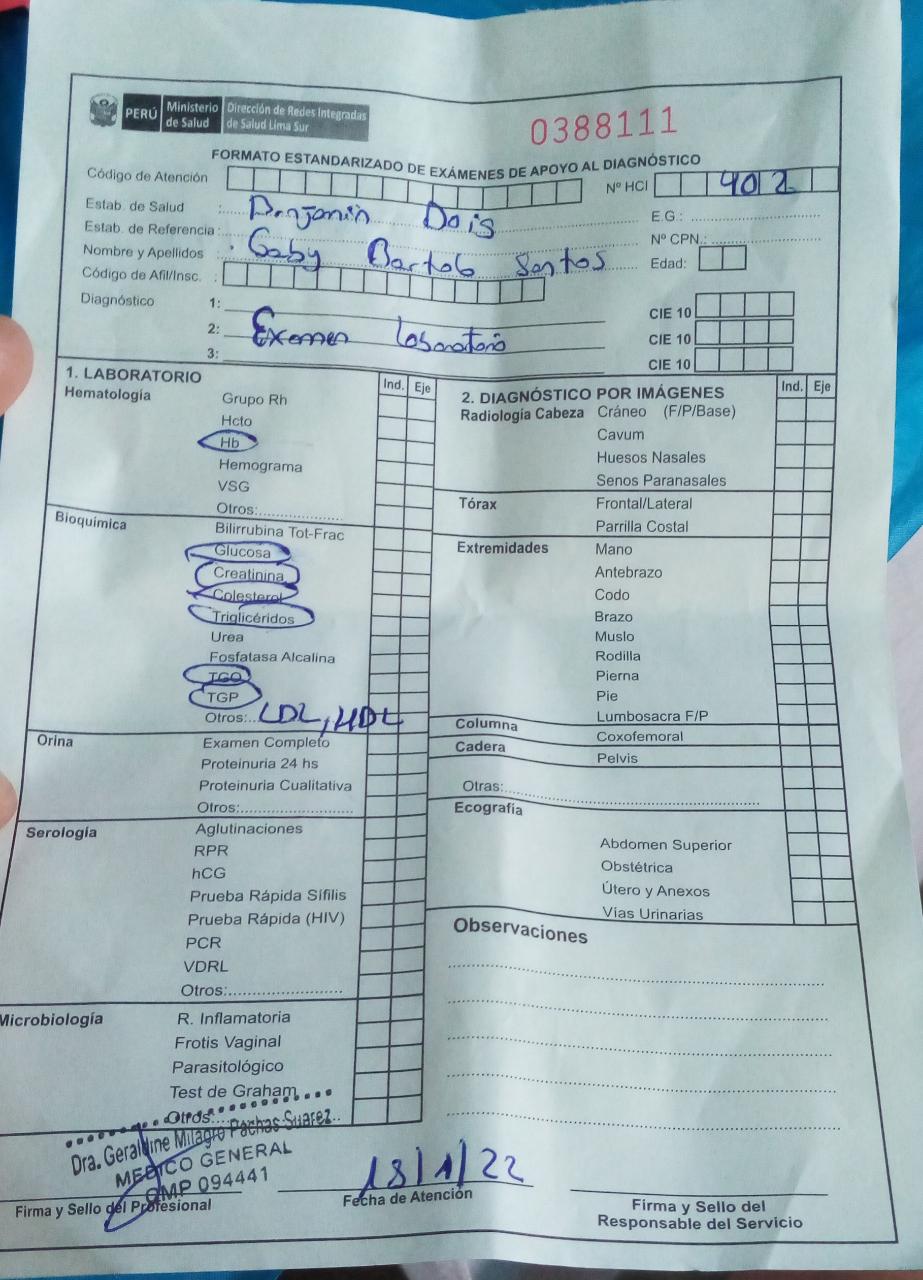 PERÚ Ministerio de Salud Dirección de Redes Integradas de Salud Lima Sur
0388111
FORMATO ESTANDARIZADO DE EXÁMENES DE APOYO AL DIAGNÓSTICO
Código de Atención Nº HCl 402
Estab. de Salud : Benjamin Dois E.G :
Estab. de Referencia : Nº CPN.:
Nombre y Apellidos : Gaby Bartolo Santos Edad:
Código de Afil/Insc. :
Diagnóstico 1: CIE 10
2: Examen Laboratorio CIE 10
3: CIE 10
1. LABORATORIO Ind. Eje
Hematología Grupo Rh
Hcto
Hb
Hemograma
VSG
Otros:
Bioquímica Bilirrubina Tot-Frac
Glucosa
Creatinina
Colesterol
Triglicéridos
Urea
Fosfatasa Alcalina
TGO
TGP
Otros: LDL, HDL
Orina Examen Completo
Proteinuria 24 hs
Proteinuria Cualitativa
Otros:
Serología Aglutinaciones
RPR
hCG
Prueba Rápida Sífilis
Prueba Rápida (HIV)
PCR
VDRL
Otros:
Microbiología R. Inflamatoria
Frotis Vaginal
Parasitológico
Test de Graham
Otros:
2. DIAGNÓSTICO POR IMÁGENES Ind. Eje
Radiología Cabeza Cráneo (F/P/Base)
Cavum
Huesos Nasales
Senos Paranasales
Tórax Frontal/Lateral
Parrilla Costal
Extremidades Mano
Antebrazo
Codo
Brazo
Muslo
Rodilla
Pierna
Pie
Columna Lumbosacra F/P
Cadera Coxofemoral
Pelvis
Otras:
Ecografía
Abdomen Superior
Obstétrica
Útero y Anexos
Vías Urinarias
Observaciones
Dra. Geraldine Milagro Pachas Suarez
MEDICO GENERAL
CMP 094441
Firma y Sello del Profesional
18/1/22
Fecha de Atención
Firma y Sello del
Responsable del Servicio